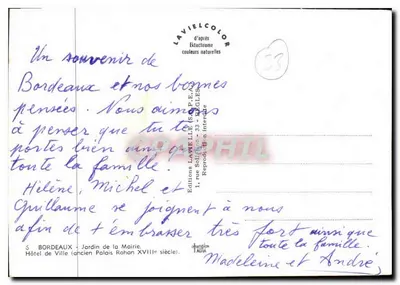 LAVIELCOLOR
d'après
Ektachrome
couleurs naturelles
33
Un souvenir de
Bordeaux et nos bonnes
pensées. Nous aimons
à penser que tu te
portes bien ainsi que
toute la famille.
Hélène, Michel et
Guillaume se joignent à nous
afin de t'embrasser très fort ainsi que
toute la famille.
Madeleine et André
Editions LAVIELLE (S.E.P.E.A.)
BORDEAUX - Jardin de la Mairie.
Hôtel de Ville (ancien Palais Rohan XVIIIe siècle).